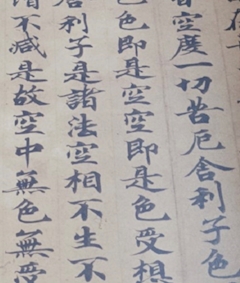 皆空度一切苦厄舍利子色
色色即是空空即是色受想
舍利子是諸法空相不生不
不減是故空中無色無受